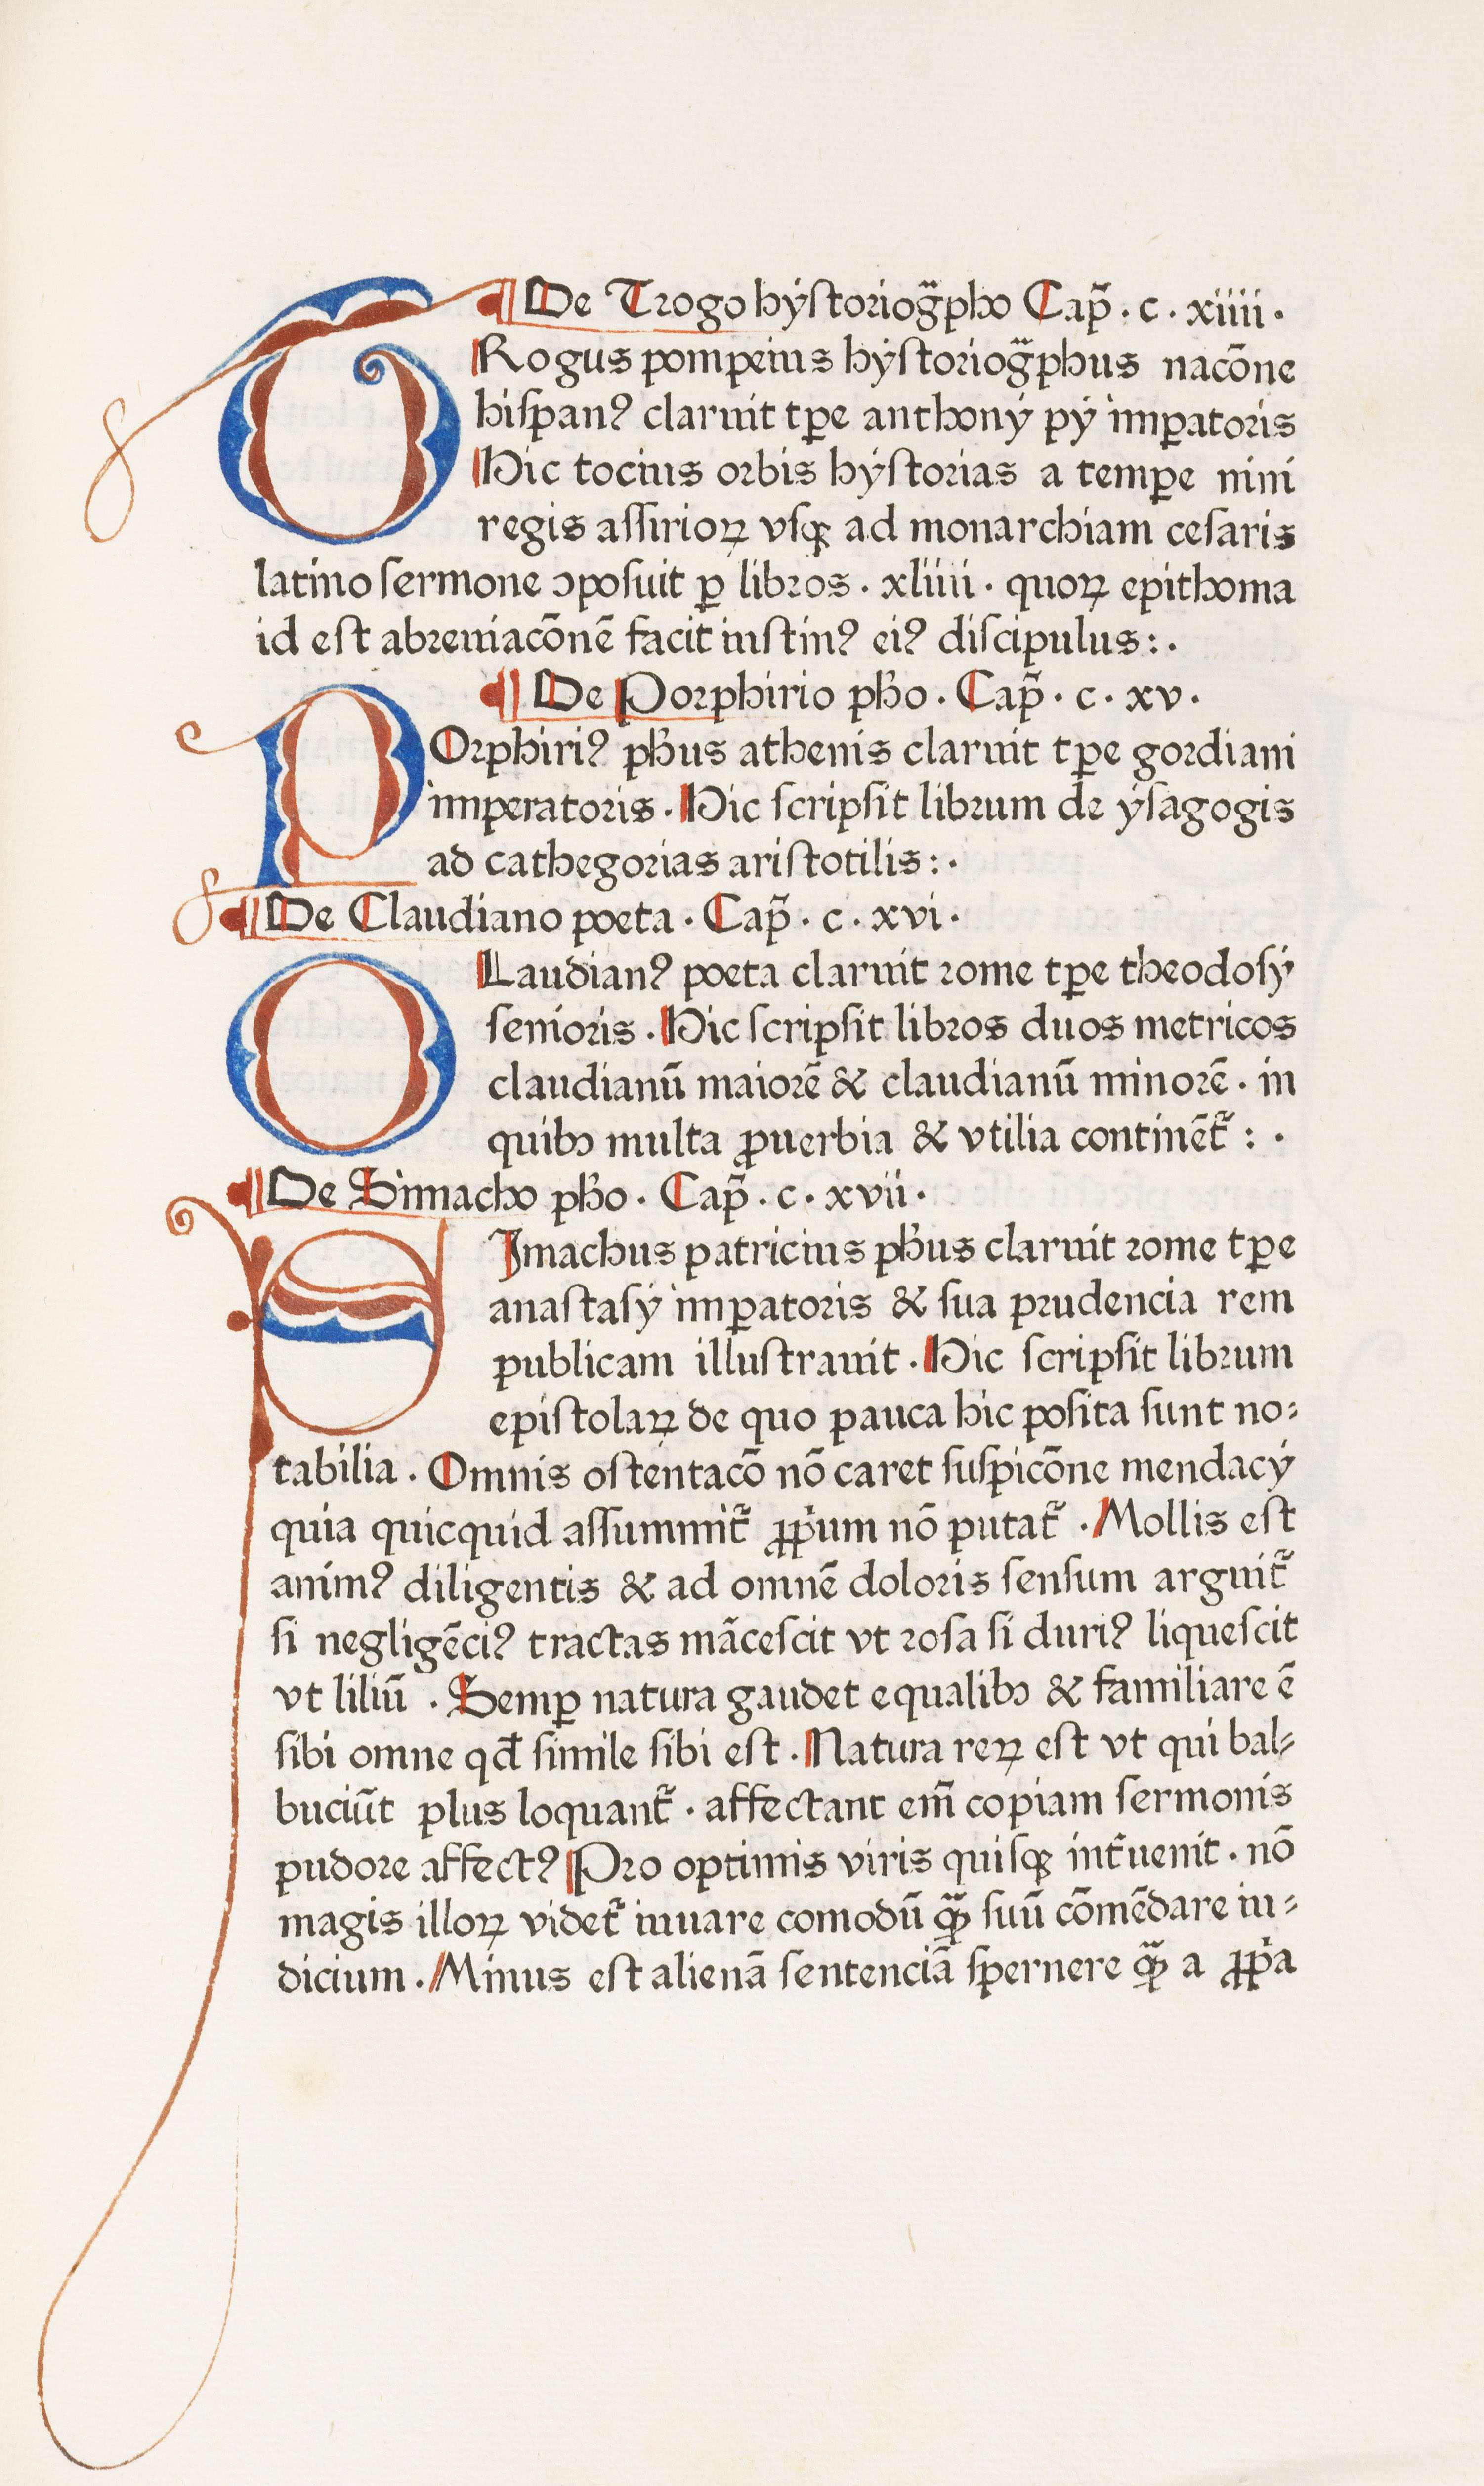 ¶ De Trogo hẏſtoriog̃pho Cap̃ . c . xiiii .
TRogus pompeius hẏſtoriog̃phus nacōne
hiſpanꝰ claruit tꝑe anthonẏ pẏ imꝑatoris
Hic tocius orbis hẏſtorias a temꝑe nini
regis aſſirioꝝ vſqꝫ ad monarchiam ceſaris
latino ſermone ꝯpoſuit ꝑ libros . xliiii . quoꝝ epithoma
id eſt abreuiacōnē facit iuſtinꝰ eiꝰ diſcipulus : .
¶ De Porphirio ph̄o . Cap̃ . c . xv .
POrphiriꝰ ph̄us athenis claruit tꝑe gordiani
imperatoris . Hic ſcripſit librum de ẏſagogis
ad cathegorias ariſtotilis : .
¶ De Claudiano poeta . Cap̃ . c . xvi .
CLaudianꝰ poeta claruit rome tꝑe theodoſẏ
ſenioris . Hic ſcripſit libros duos metricos
claudianū maiorē & claudianū minorē . in
quibꝯ multa ꝓuerbia & vtilia continēt᷑ : .
¶ De Simacho ph̄o . Cap̃ . c . xvii .
SImachus patricius ph̄us claruit rome tꝑe
anaſtaſẏ imꝑatoris & ſua prudencia rem
publicam illuſtrauit . Hic ſcripſit librum
epiſtolaꝝ de quo pauca hic poſita ſunt no⸗
tabilia . Omnis oſtentacō nō caret ſuſpicōne mendacẏ
quia quicquid aſſummit᷑ ꝓpͥum nō putat᷑ . Mollis eſt
animꝰ diligentis & ad omnē doloris ſenſum arguit᷑
ſi negligēciꝰ tractas mācеſcit vt roſa ſi duriꝰ liqueſcit
vt liliū . Semꝑ natura gaudet equalibꝯ & familiare ē
ſibi omne qd̄ ſimile ſibi eſt . Natura reꝝ eſt vt qui bal⸗
buciūt plus loquant᷑ . affectant em̄ copiam ſermonis
pudore affectꝰ Pro optimis viris quiſqꝫ int̄uenit . nō
magis illoꝝ videt᷑ iuuare comodū qᷓꝫ ſuū cōmēdare iu⸗
dicium . Minus eſt alienā ſentenciā ſpernere qᷓꝫ a ꝓpͥa